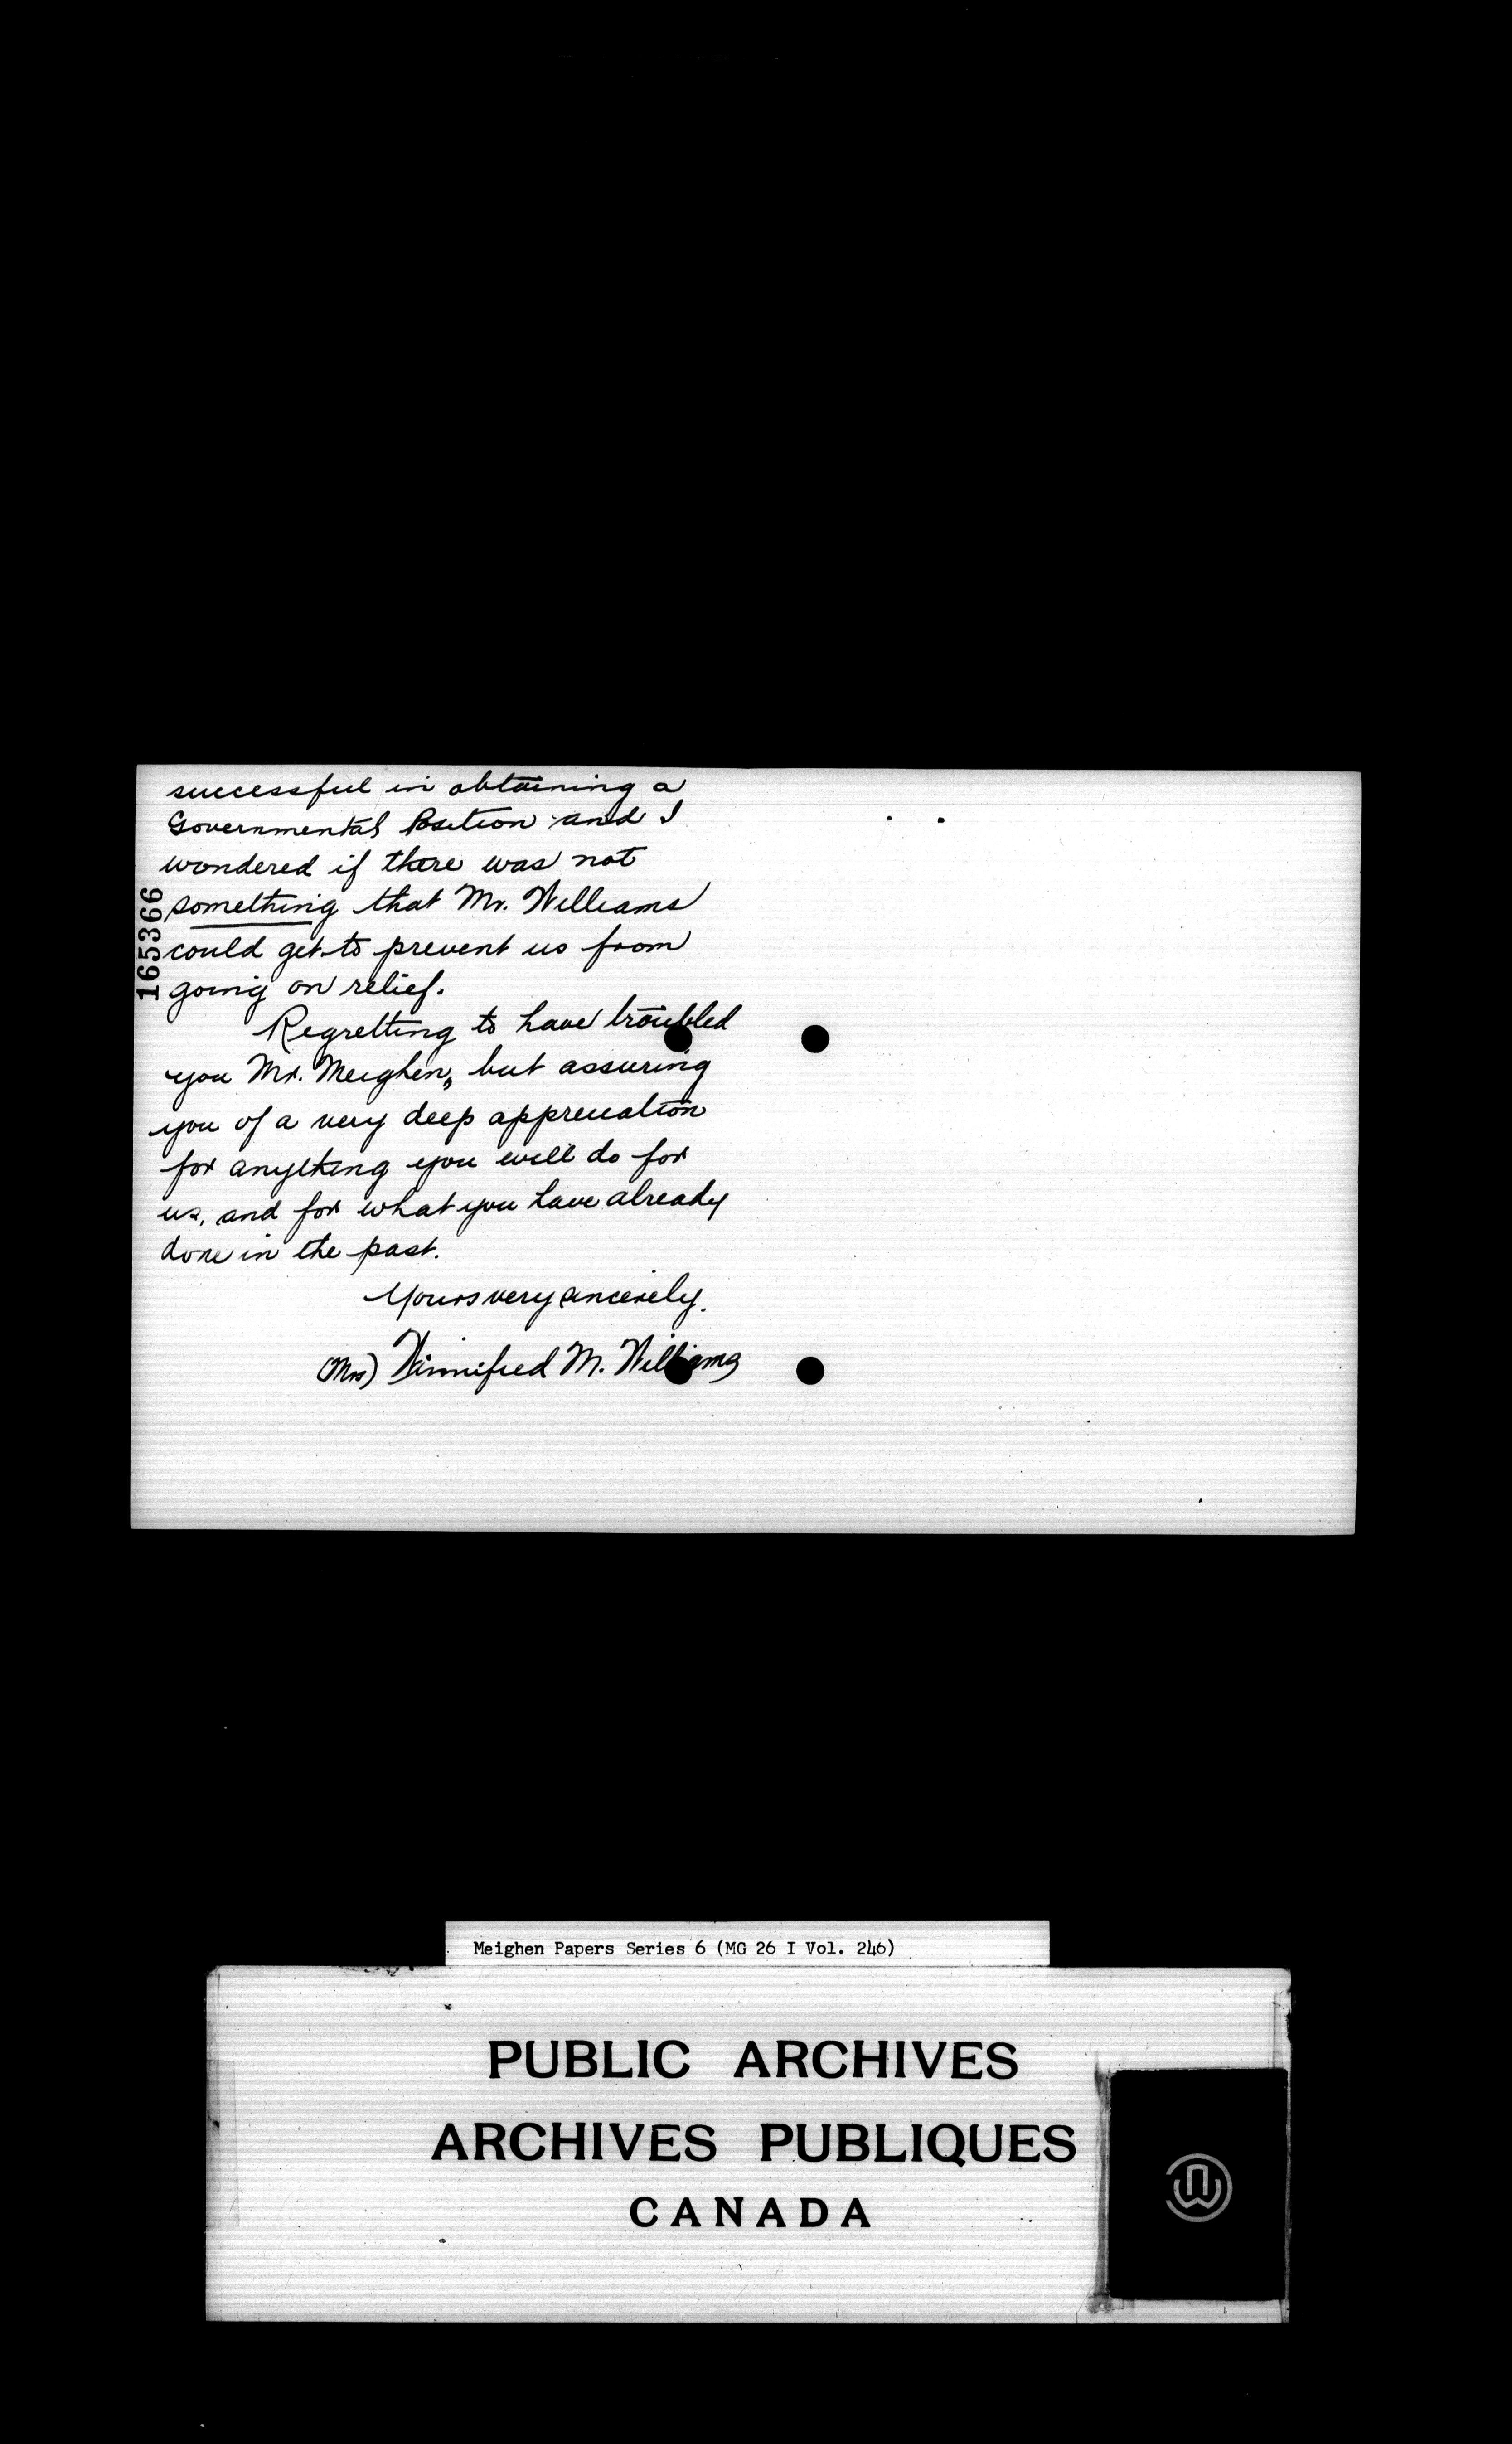 successful in obtaining a
Governmental Position and I
wondered if there was not
something that Mr. Williams
could get to prevent us from
going on relief.
Regretting to have troubled
you Mr. Meighen, but assuring
you of a very deep appreciation
for anything you will do for
us, and for what you have already
done in the past.
Yours very sincerely.
(Mrs) Winnifred M. Williams
165366
Meighen Papers Series 6 (MG 26 I Vol. 246)
PUBLIC ARCHIVES
ARCHIVES PUBLIQUES
CANADA